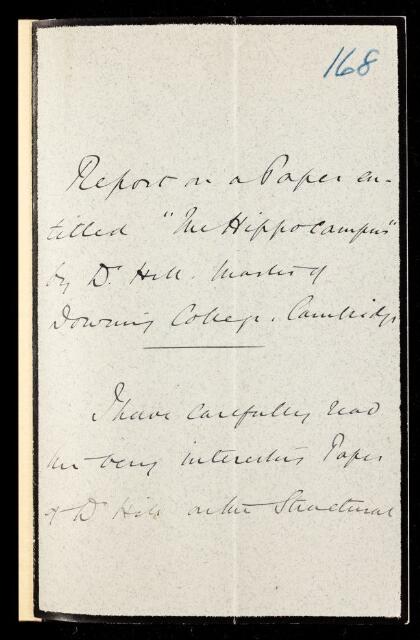 168
Report on a Paper en-
titled "The Hippocampus"
by Dr Hill. Master of
Downing College. Cambridge
I have carefully read
the very interesting Paper
of Dr Hill on the Structural